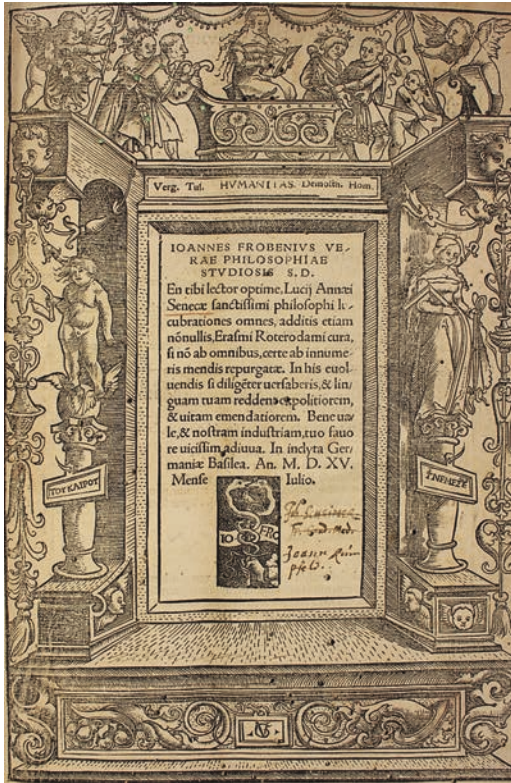 Verg. Tul. HVMANITAS. Demosth. Hom.
IOANNES FROBENIVS VE-
RAE PHILOSOPHIAE
STVDIOSIS S.D.
En tibi lector optime, Lucij Annæi
Senecæ sanctissimi philosophi lu-
cubrationes omnes, additis etiam
nōnullis, Erasmi Roterodami cura,
si nō ab omnibus, certe ab innume
ris mendis repurgatæ. In his euol-
uendis si diligēter uersaberis, & lin-
guam tuam reddens expolitiorem,
& uitam emendatiorem. Bene ua-
le, & nostram industriam, tuo fauo
re uicissim adiuua. In inclyta Ger-
maniæ Basilea. An. M. D. XV.
Mense Iulio.
ΤΟΥ ΚΑΙΡΟΥ
IO FRO
Joann
VG